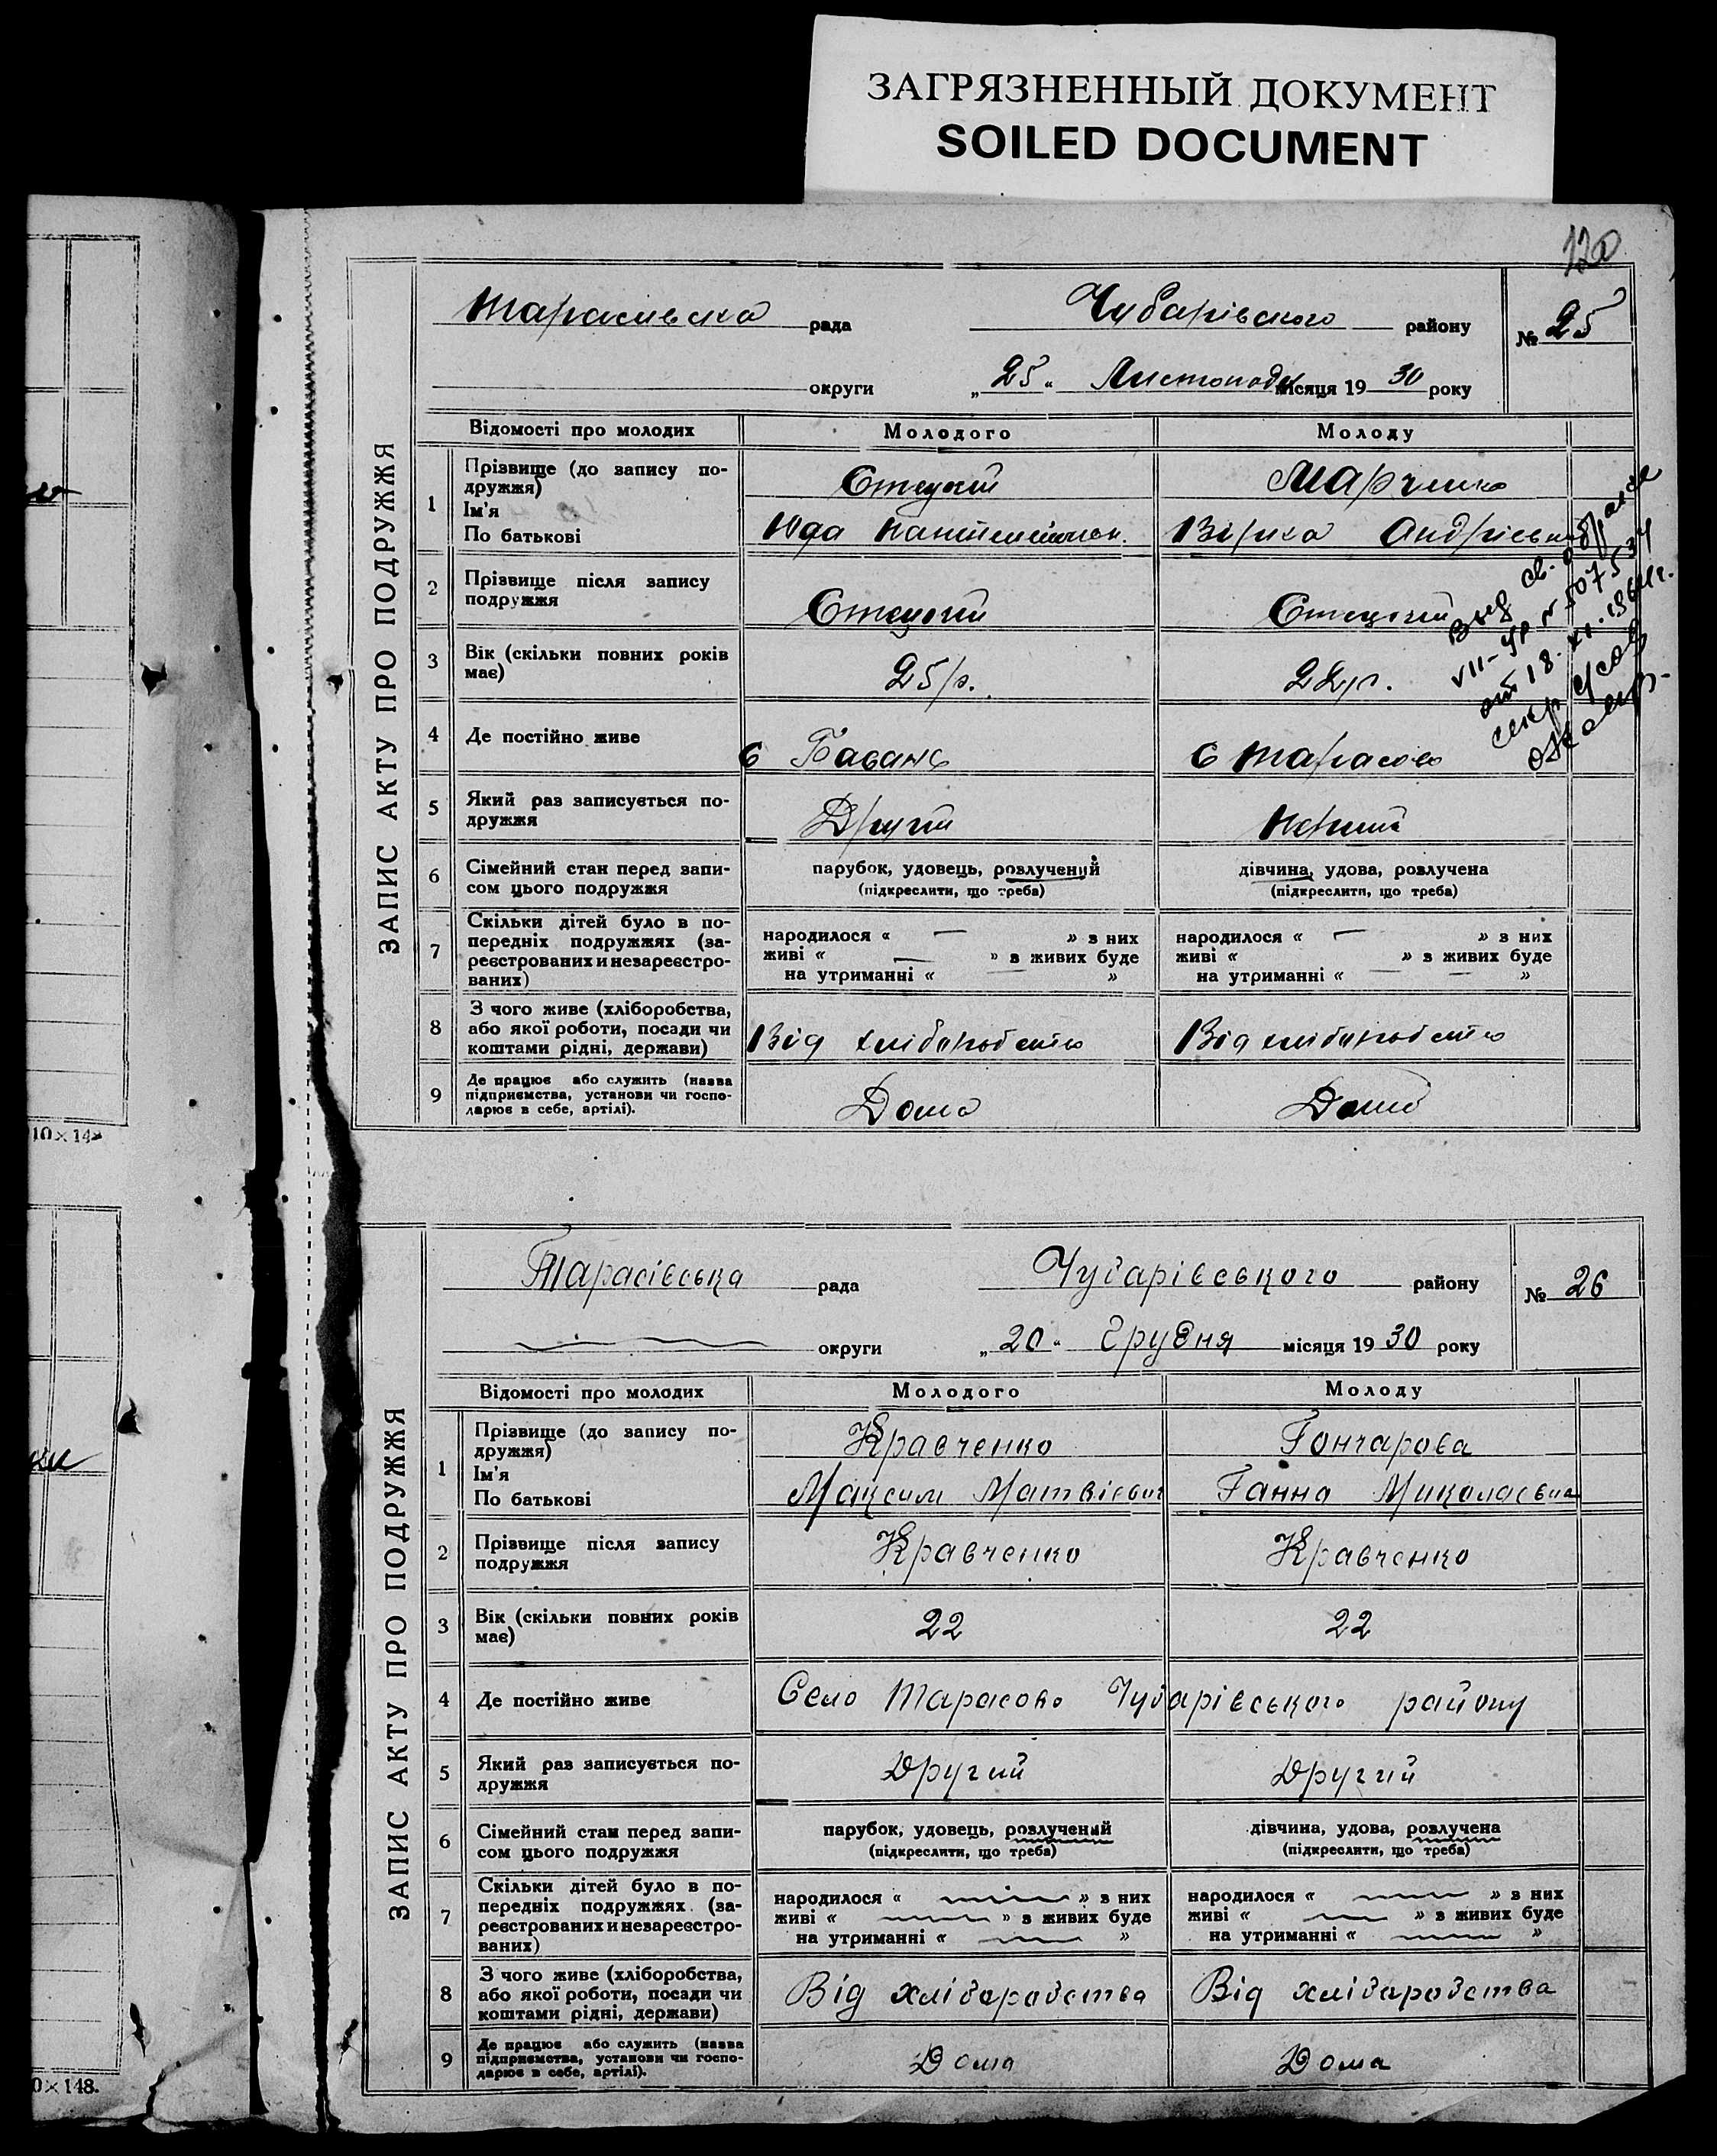 ЗАГРЯЗНЕННЫЙ ДОКУМЕНТ
SOILED DOCUMENT
120
ЗАПИС АКТУ ПРО ПОДРУЖЖЯ
рада Чубарівського району № 25
округи „25“ Листопада місяця 1930 року
Відомості про молодих Молодого Молоду
1 Прізвище (до запису подружжя) Стецкий Марченко
Ім'я
По батькові Вірка Андріевна
2 Прізвище після запису подружжя Стецкий Стецкий
3 Вік (скільки повних років має) 25 р. 22 р.
4 Де постійно живе С С Тарасово
5 Який раз записується подружжя Другий Перший
6 Сімейний стан перед записом цього подружжя парубок, удовець, розлучений дівчина, удова, розлучена
(підкреслити, що треба) (підкреслити, що треба)
7 Скільки дітей було в попередніх подружжях (зареєстрованих и незареєстрованих)
народилося « — » з них народилося « — » з них
живі « — » з живих буде живі « » з живих буде
на утриманні « » на утриманні « — — »
8 З чого живе (хліборобства, або якої роботи, посади чи коштами рідні, держави) Від Від
9 Де працює або служить (назва підприємства, установи чи господарює в себе, артілі). Дома Дома
Выд св. о браке
VII-УР № 507534
от 18. XI. 1964 г.
секр с/сов
10×14
ЗАПИС АКТУ ПРО ПОДРУЖЖЯ
Тарасівська рада Чубарівського району № 26
округи „20“ Грудня місяця 1930 року
Відомості про молодих Молодого Молоду
1 Прізвище (до запису подружжя) Кравченко Гончарова
Ім'я
По батькові Максим Матвієвич Ганна Миколаєвна
2 Прізвище після запису подружжя Кравченко Кравченко
3 Вік (скільки повних років має) 22 22
4 Де постійно живе Село Тарасово Чубарівського району
5 Який раз записується подружжя Другий Другий
6 Сімейний стан перед записом цього подружжя парубок, удовець, розлучений дівчина, удова, розлучена
(підкреслити, що треба) (підкреслити, що треба)
7 Скільки дітей було в попередніх подружжях (зареєстрованих и незареєстрованих)
народилося « » з них народилося « » з них
живі « » з живих буде живі « » з живих буде
на утриманні « » на утриманні « »
8 З чого живе (хліборобства, або якої роботи, посади чи коштами рідні, держави) Від хліборобства Від хліборобства
9 Де працює або служить (назва підприємства, установи чи господарює в себе, артілі). Дома Дома
0×148.